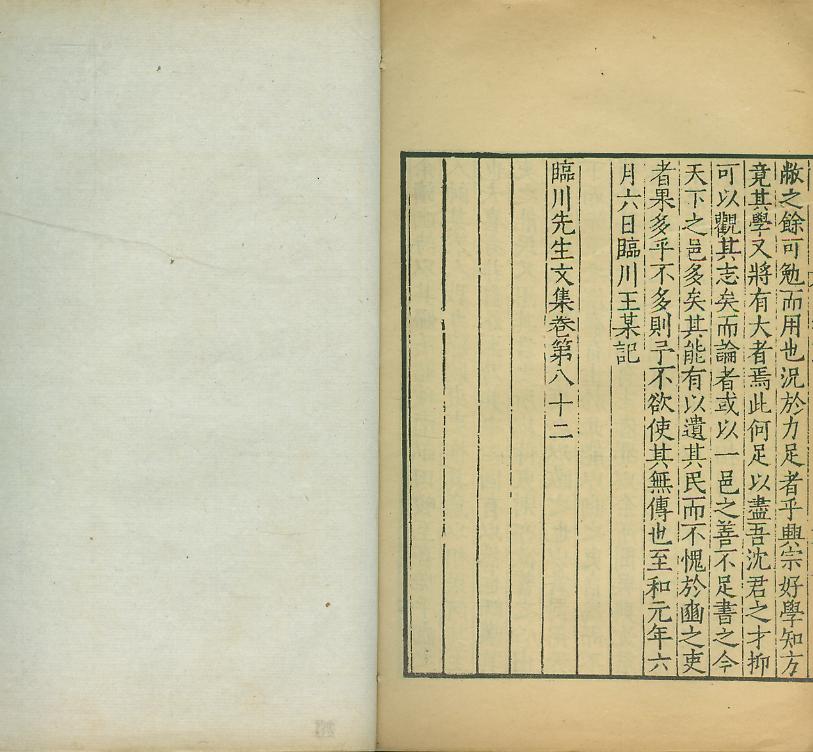 敝之餘可勉而用也況於力足者乎興宗好學知方
竟其學又將有大者焉此何足以盡吾沈君之才抑
可以觀其志矣而論者或以一邑之善不足書之今
天下之邑多矣其能有以遺其民而不愧於豳之吏
者果多乎不多則予不欲使其無傳也至和元年六
月六日臨川王某記
臨川先生文集卷第八十二